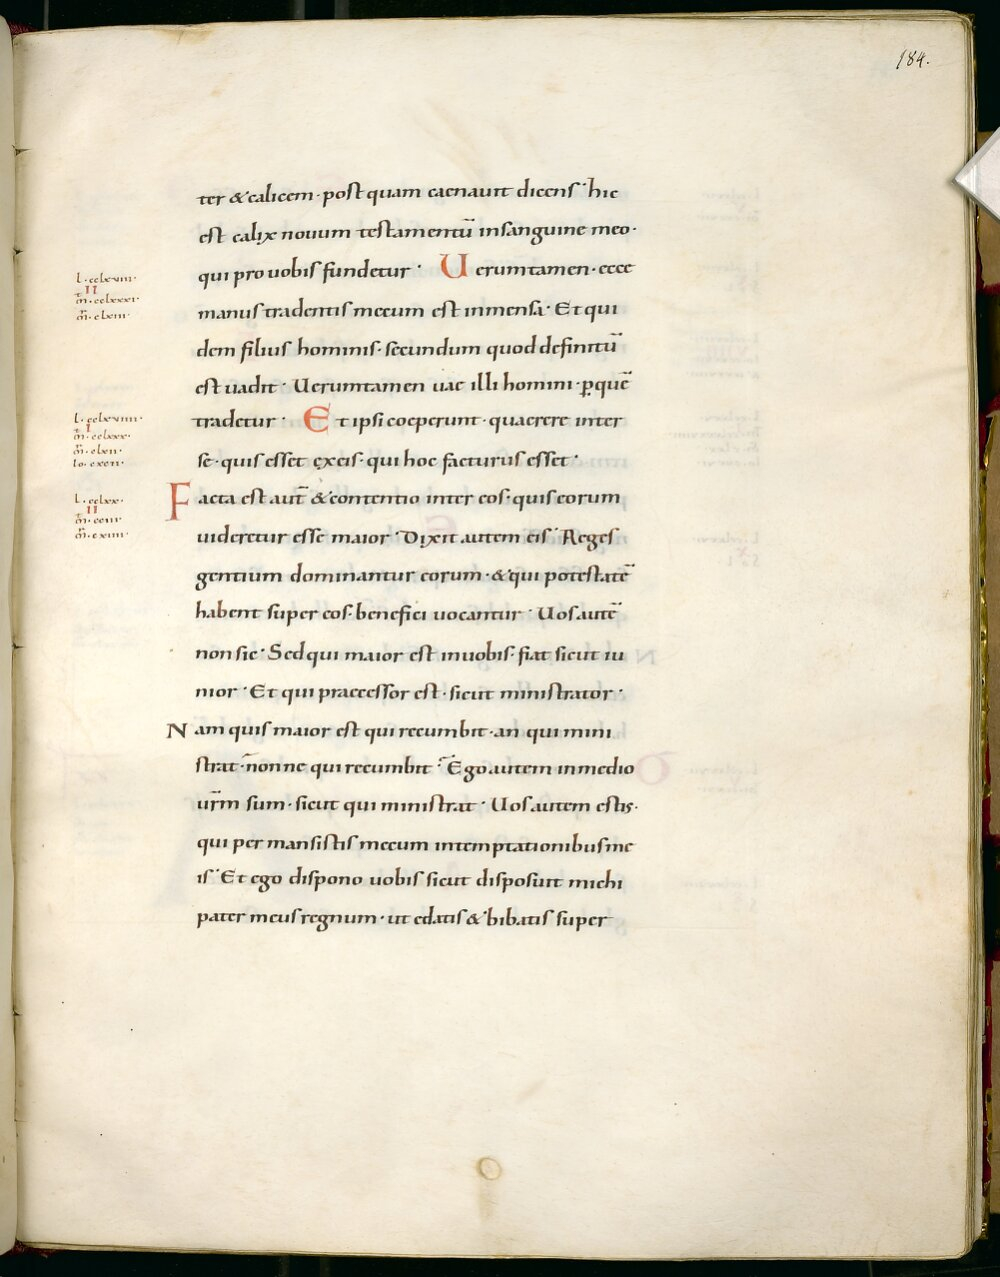 184.
ter & calicem · post quam caenauit dicens · hic
est calix nouum testamentū insanguine meo ·
qui pro uobis fundetur · Uerumtamen · ecce
l · cclxviii ·
II
m̄ · cclxxxi ·
m̄ · clxiii ·
manus tradentis mecum est inmensa · Et qui
dem filius hominis · secundum quod definitū
est uadit · Uerumtamen uae illi homini · ꝑquē
tradetur · Et ipsi coeperunt · quaerere inter
l · cclxviiii ·
I
m̄ · cclxxx ·
m̄ · clxii ·
Io · cxcii ·
se · quis esset ęxeis · qui hoc facturus esset ·
Facta est aut̄ & contentio inter eos · quis eorum
l · cclxx ·
II
m̄ · cciii ·
m̄ · cxiiii ·
uideretur esse maior · Dixit autem eis · Reges
gentium dominantur eorum · & qui potestatē
habent super eos · benefici uocantur · Uos autē
non sic · Sed qui maior est inuobis · fiat sicut iu
nior · Et qui praecessor est · sicut ministrator ·
Nam quis maior est qui recumbit · an qui mini
strat · nonne qui recumbit · Ego autem inmedio
ur̄m sum · sicut qui ministrat · Uos autem estis ·
qui per mansistis mecum intemptationibus me
is · Et ego dispono uobis sicut disposuit michi
pater meus regnum · ut edatis & bibatis super